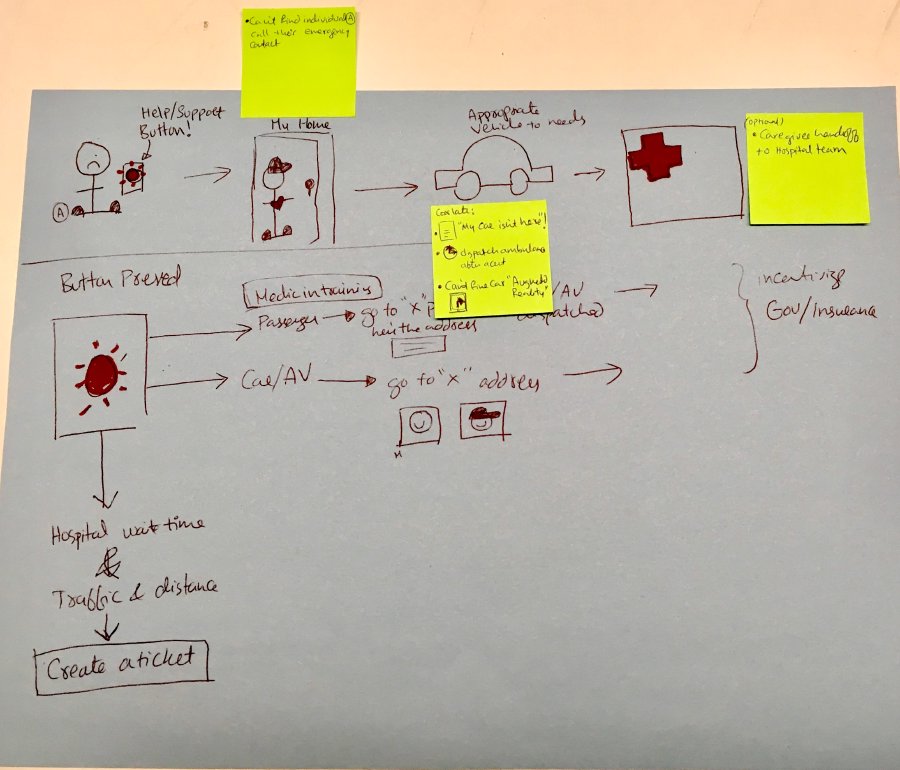 • Can't find individual A
call their emergency
contact
Help/Support
Button!
My Home
Appropriate
Vehicle to needs
(Optional)
• Caregiver handoff
to Hospital team
A
Car late:
• "My car isn't here"!
• dispatch ambulance
after acert
• Can't Find Car "Augmented
Reality"
Button Pressed
Medic in training
Passenger
go to "X"
here's the address
/AV
dispatched
Car/AV
go to "X" address
incentivize
Gov/Insurance
Hospital wait time
&
Traffic & distance
Create a ticket